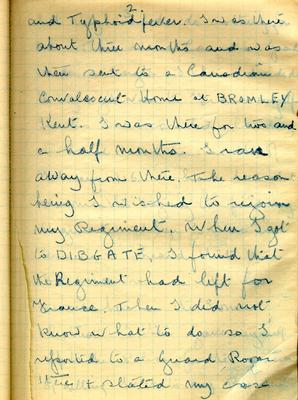 2.
and Typhoid fever. I was there
about three months and was
then sent to a Canadian
Convalescent Home at BROMLEY
Kent. I was there for two and
a half months. I ran
away from there. The reason
being I wished to rejoin
my Regiment. When I got
to DIBGATE I found that
the Regiment had left for
France. Then I did not
know what to do so I
reported to a Guard Room
& stated my case